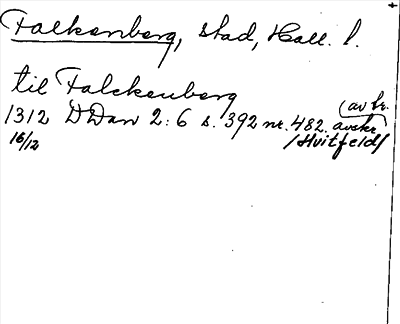 Falkenberg, stad, Hall. l.
til Falckenberg
(av br.
1312 DDan 2:6 s. 392 nr. 482. avskr
16/12 /Hvitfeld/